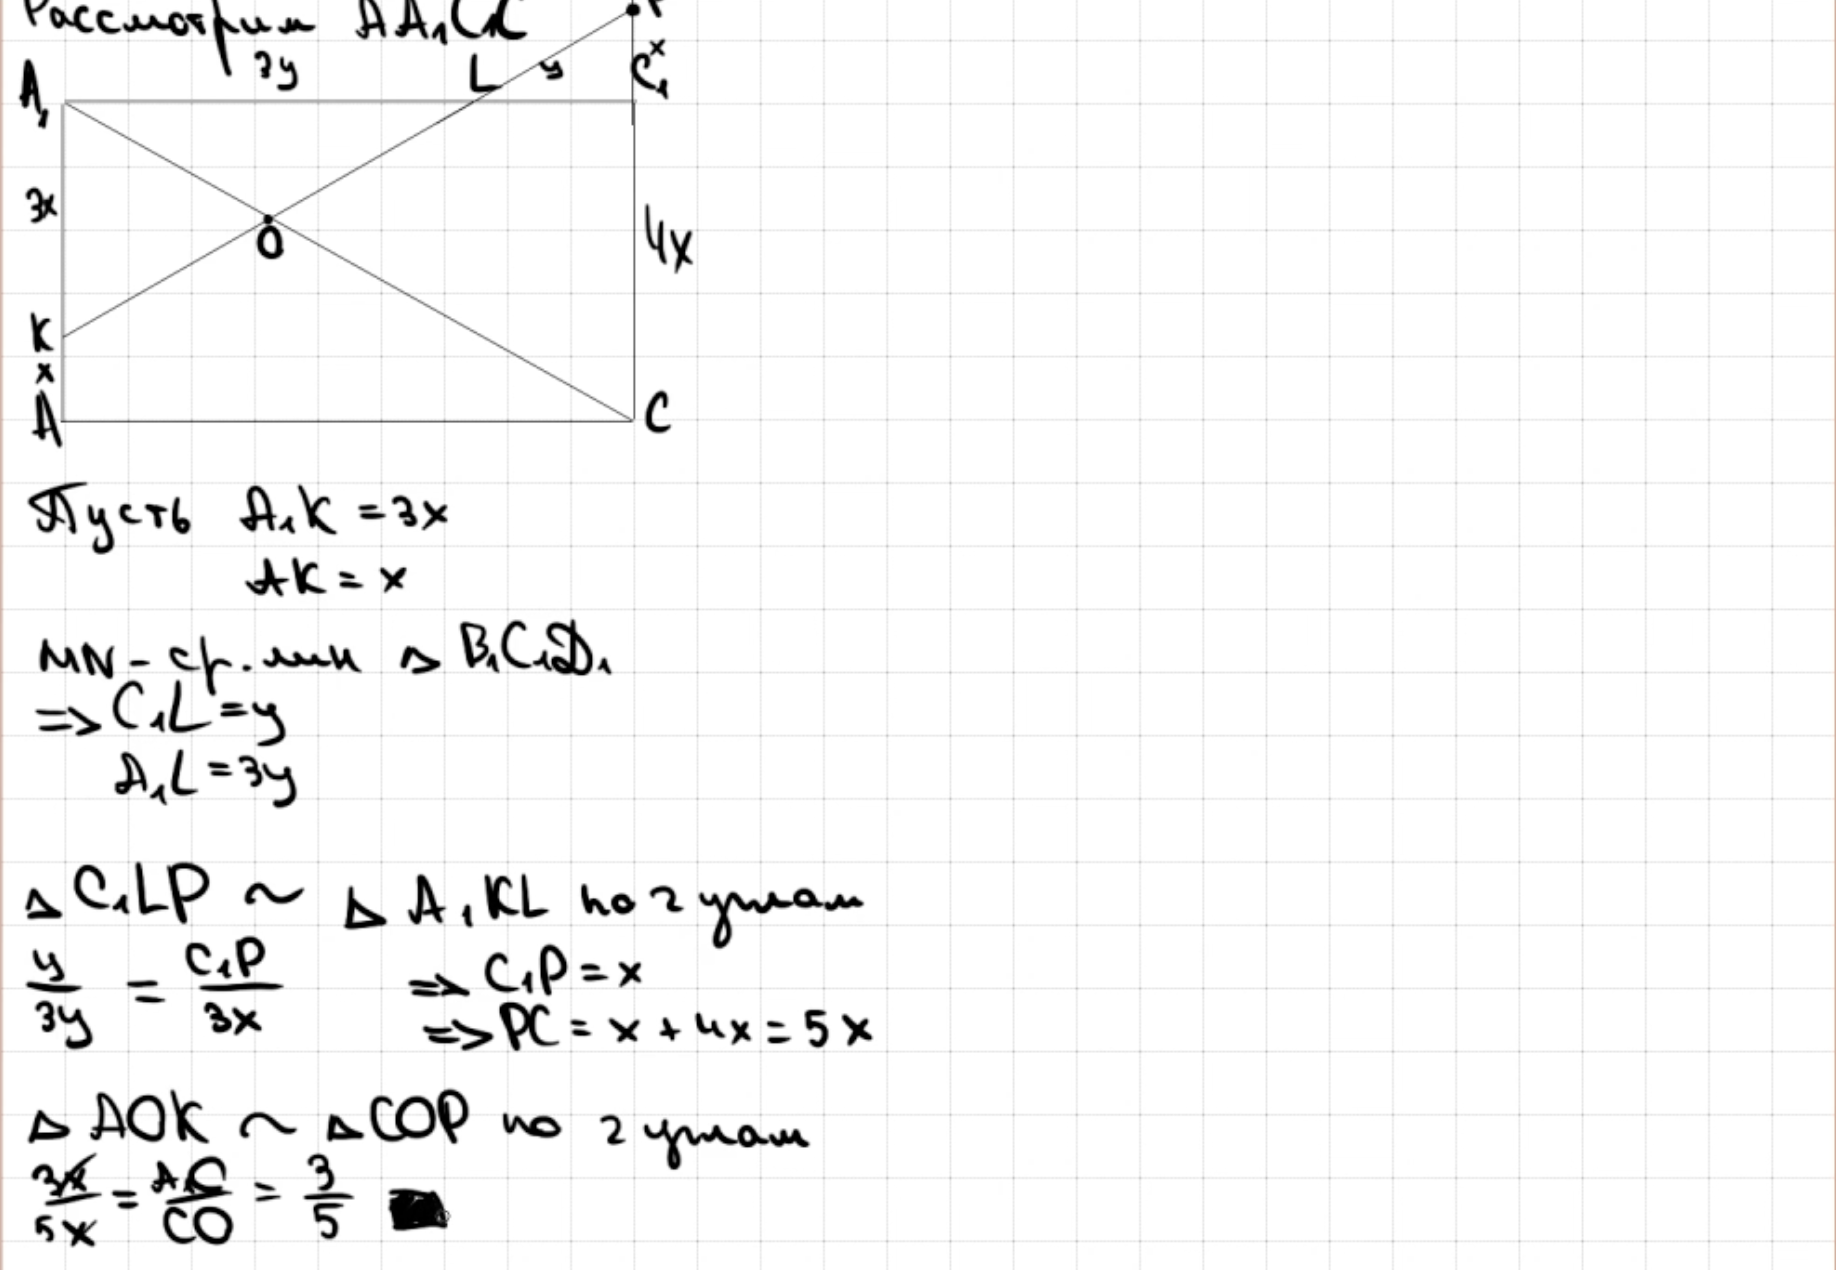 Рассмотрим AA₁C₁C
3y L y x
A₁ C₁
3x
O 4x
K
x
A C
Пусть A₁K = 3x
AK = x
MN - ср. лин △ B₁C₁D₁
=> C₁L = y
A₁L = 3y
△ C₁LP ~ △ A₁KL по 2 углам
y/3y = C₁P/3x => C₁P = x
=> PC = x + 4x = 5x
△ AOK ~ △ COP по 2 углам
3x/5x = A₁O/CO = 3/5